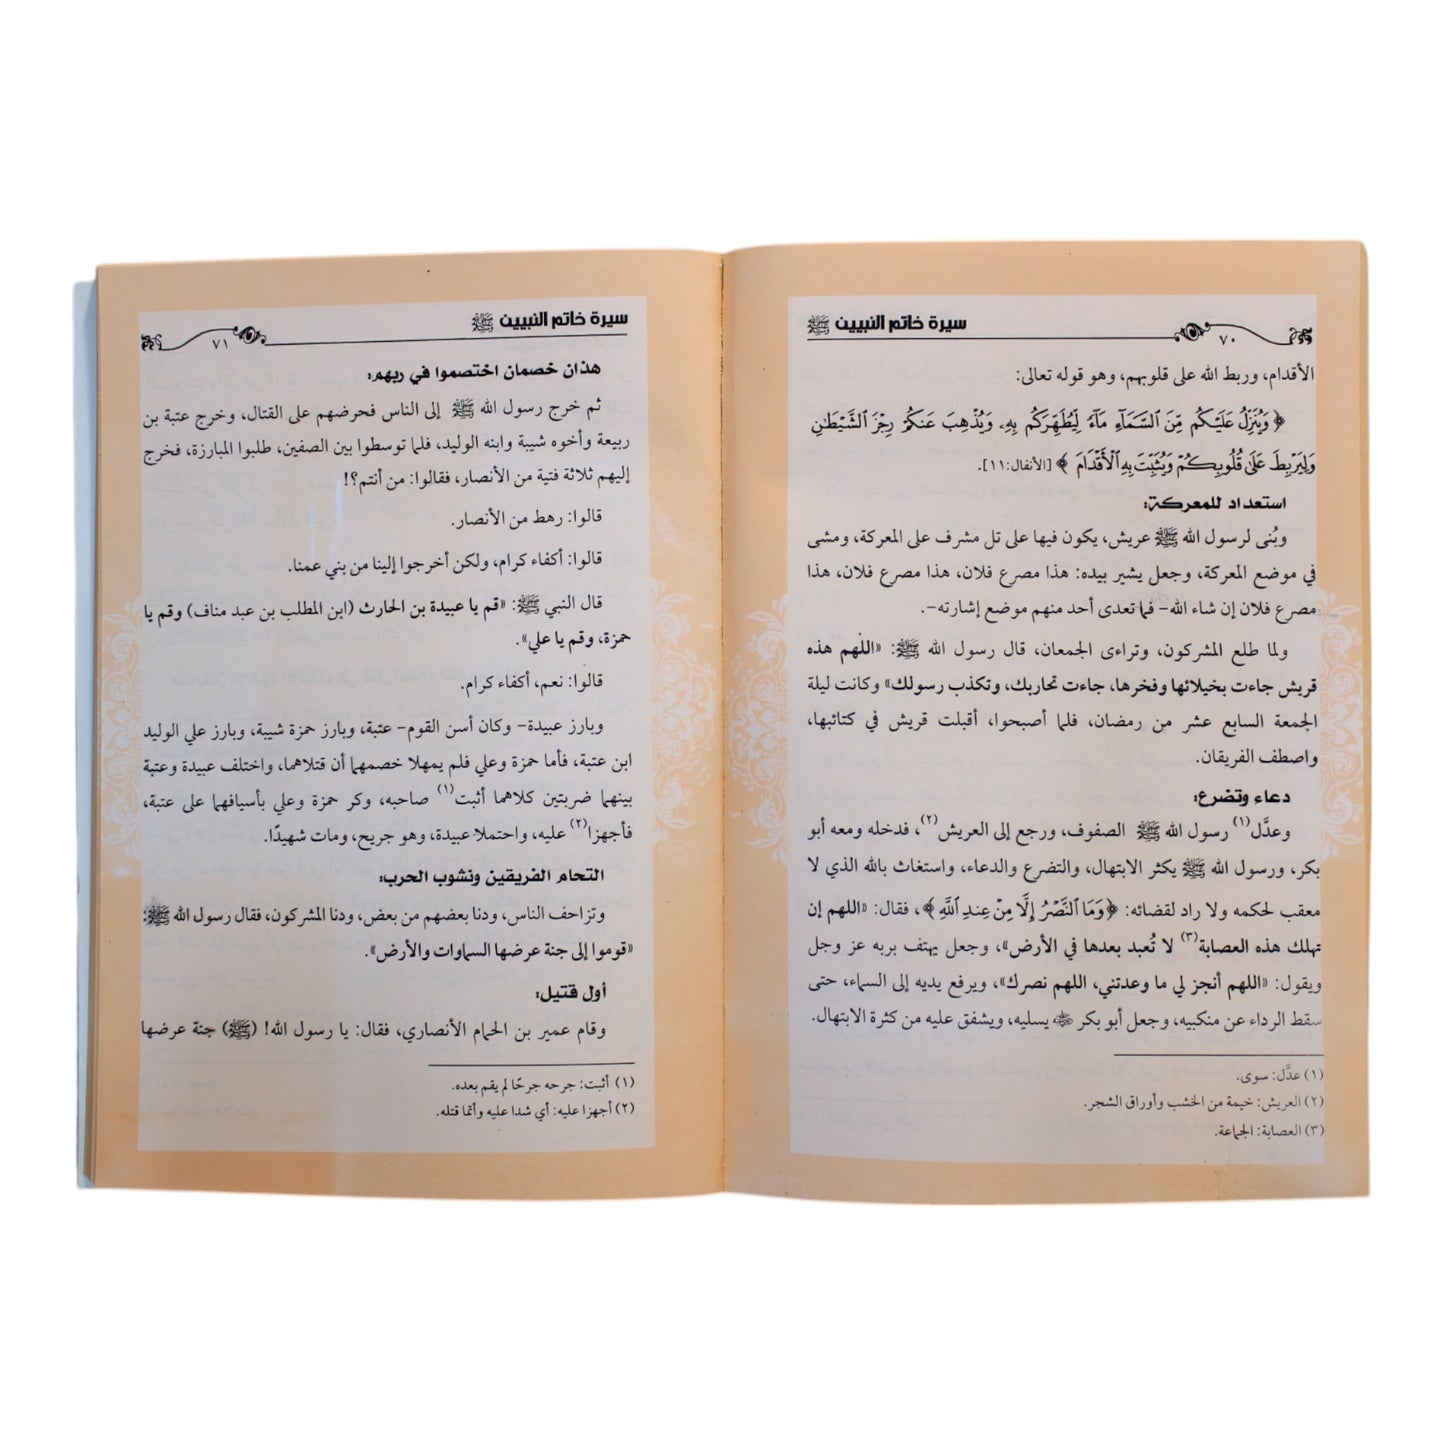 سيرة خاتم النبيين ﷺ
٧٠
الأقدام، وربط الله على قلوبهم، وهو قوله تعالى:
﴿ وَيُنَزِّلُ عَلَيْكُم مِّنَ ٱلسَّمَآءِ مَآءً لِّيُطَهِّرَكُم بِهِۦ وَيُذْهِبَ عَنكُمْ رِجْزَ ٱلشَّيْطَٰنِ
وَلِيَرْبِطَ عَلَىٰ قُلُوبِكُمْ وَيُثَبِّتَ بِهِ ٱلْأَقْدَامَ ﴾ [الأنفال:١١].
استعداد للمعركة:
وبُنى لرسول الله ﷺ عريش، يكون فيها على تل مشرف على المعركة، ومشى
في موضع المعركة، وجعل يشير بيده: هذا مصرع فلان، هذا مصرع فلان، هذا
مصرع فلان إن شاء الله- فما تعدى أحد منهم موضع إشارته-.
ولما طلع المشركون، وتراءى الجمعان، قال رسول الله ﷺ: «اللهم هذه
قريش جاءت بخيلائها وفخرها، جاءت تحاربك، وتكذب رسولك» وكانت ليلة
الجمعة السابع عشر من رمضان، فلما أصبحوا، أقبلت قريش في كتائبها،
واصطف الفريقان.
دعاء وتضرع:
وعدَّل(١) رسول الله ﷺ الصفوف، ورجع إلى العريش(٢)، فدخله ومعه أبو
بكر، ورسول الله ﷺ يكثر الابتهال، والتضرع والدعاء، واستغاث بالله الذي لا
معقب لحكمه ولا راد لقضائه: ﴿وَمَا ٱلنَّصْرُ إِلَّا مِنْ عِندِ ٱللَّهِ﴾، فقال: «اللهم إن
تهلك هذه العصابة(٣) لا تُعبد بعدها في الأرض»، وجعل يهتف بربه عز وجل
ويقول: «اللهم أنجز لي ما وعدتني، اللهم نصرك»، ويرفع يديه إلى السماء، حتى
سقط الرداء عن منكبيه، وجعل أبو بكر رضي الله عنه يسليه، ويشفق عليه من كثرة الابتهال.
(١) عدَّل: سوى.
(٢) العريش: خيمة من الخشب وأوراق الشجر.
(٣) العصابة: الجماعة.
سيرة خاتم النبيين ﷺ
٧١
هذان خصمان اختصموا في ربهم:
ثم خرج رسول الله ﷺ إلى الناس فحرضهم على القتال، وخرج عتبة بن
ربيعة وأخوه شيبة وابنه الوليد، فلما توسطوا بين الصفين، طلبوا المبارزة، فخرج
إليهم ثلاثة فتية من الأنصار، فقالوا: من أنتم؟!
قالوا: رهط من الأنصار.
قالوا: أكفاء كرام، ولكن أخرجوا إلينا من بني عمنا.
قال النبي ﷺ: «قم يا عبيدة بن الحارث (ابن المطلب بن عبد مناف) وقم يا
حمزة، وقم يا علي».
قالوا: نعم، أكفاء كرام.
وبارز عبيدة- وكان أسن القوم- عتبة، وبارز حمزة شيبة، وبارز علي الوليد
ابن عتبة، فأما حمزة وعلي فلم يمهلا خصمهما أن قتلاهما، واختلف عبيدة وعتبة
بينهما ضربتين كلاهما أثبت(١) صاحبه، وكر حمزة وعلي بأسيافهما على عتبة،
فأجهزا(٢) عليه، واحتملا عبيدة، وهو جريح، ومات شهيدًا.
التحام الفريقين ونشوب الحرب:
وتزاحف الناس، ودنا بعضهم من بعض، ودنا المشركون، فقال رسول الله ﷺ:
«قوموا إلى جنة عرضها السماوات والأرض».
أول قتيل:
وقام عمير بن الحمام الأنصاري، فقال: يا رسول الله! (ﷺ) جنة عرضها
(١) أثبت: جرحه جرحًا لم يقم بعده.
(٢) أجهزا عليه: أي شدا عليه وأتما قتله.